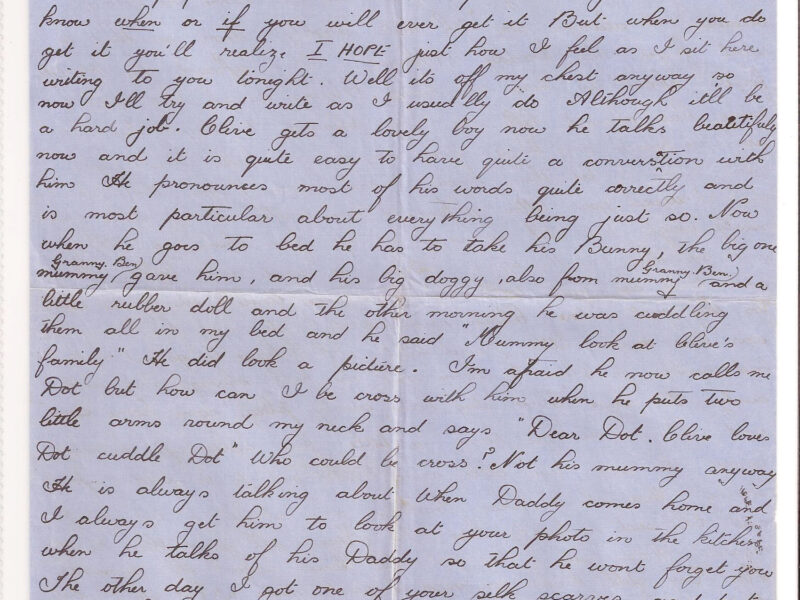 know when or if you will ever get it But when you do
get it you'll realize I HOPE just how I feel as I sit here
writing to you tonight. Well its off my chest anyway so
now I'll try and write as I usually do Although it'll be
a hard job. Clive gets a lovely boy now he talks beautifuly
now and it is quite easy to have quite a converstion with
him He pronounces most of his words quite correctly and
is most particular about everything being just so. Now
when he goes to bed he has to take his Bunny, the big one
Granny. Ben) Granny. Ben)
mummy gave him, and his big doggy, also from mummy and a
little rubber doll and the other morning he was cuddling
them all in my bed and he said "Mummy look at Clive's
family" He did look a picture. I'm afraid he now calls me
Dot but how can I be cross with him when he puts two
little arms round my neck and says "Dear Dot. Clive loves
Dot cuddle Dot" Who could be cross? Not his mummy anyway
He is always talking about When Daddy comes home and
I always get him to look at your photo in the kitchen
when he talks of his Daddy so that he wont forget you
The other day I got one of your silk scarves